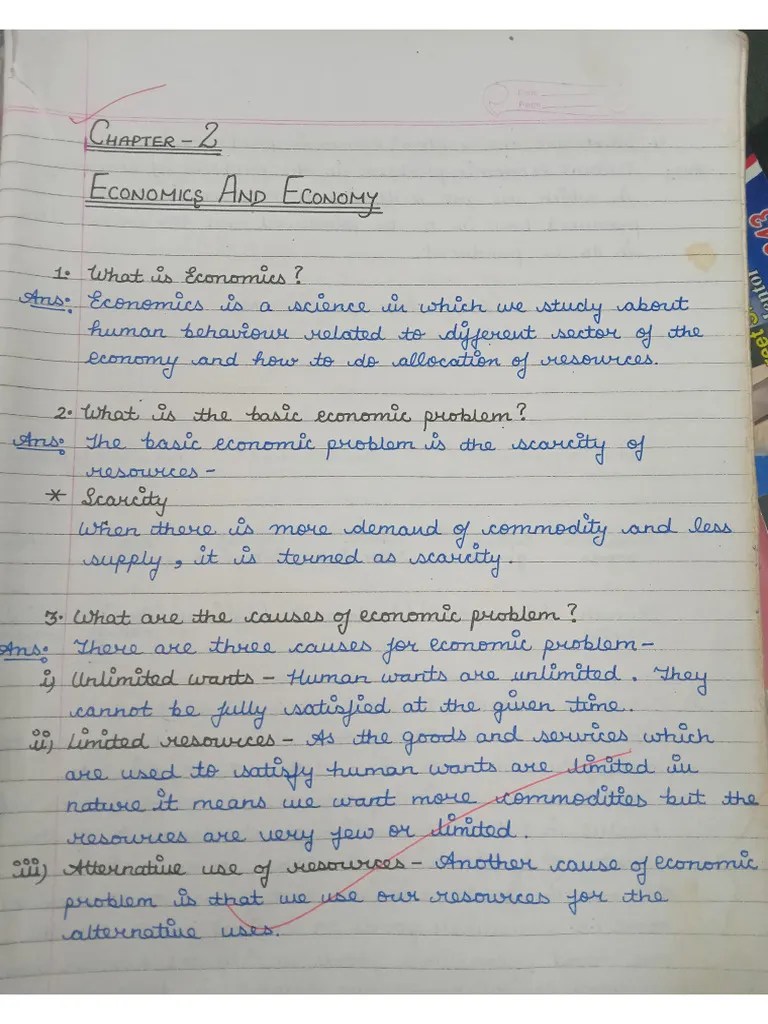 CHAPTER - 2
ECONOMICS AND ECONOMY
1. What is Economics?
Ans: Economics is a science in which we study about
human behaviour related to different sector of the
economy and how to do allocation of resources.
2. What is the basic economic problem?
Ans: The basic economic problem is the scarcity of
resources -
* Scarcity
When there is more demand of commodity and less
supply, it is termed as scarcity.
3. What are the causes of economic problem?
Ans: There are three causes for economic problem -
i) Unlimited wants - Human wants are unlimited. They
cannot be fully satisfied at the given time.
ii) Limited resources - As the goods and services which
are used to satisfy human wants are limited in
nature it means we want more commodities but the
resources are very few or limited.
iii) Alternative use of resources - Another cause of economic
problem is that we use our resources for the
alternative uses.